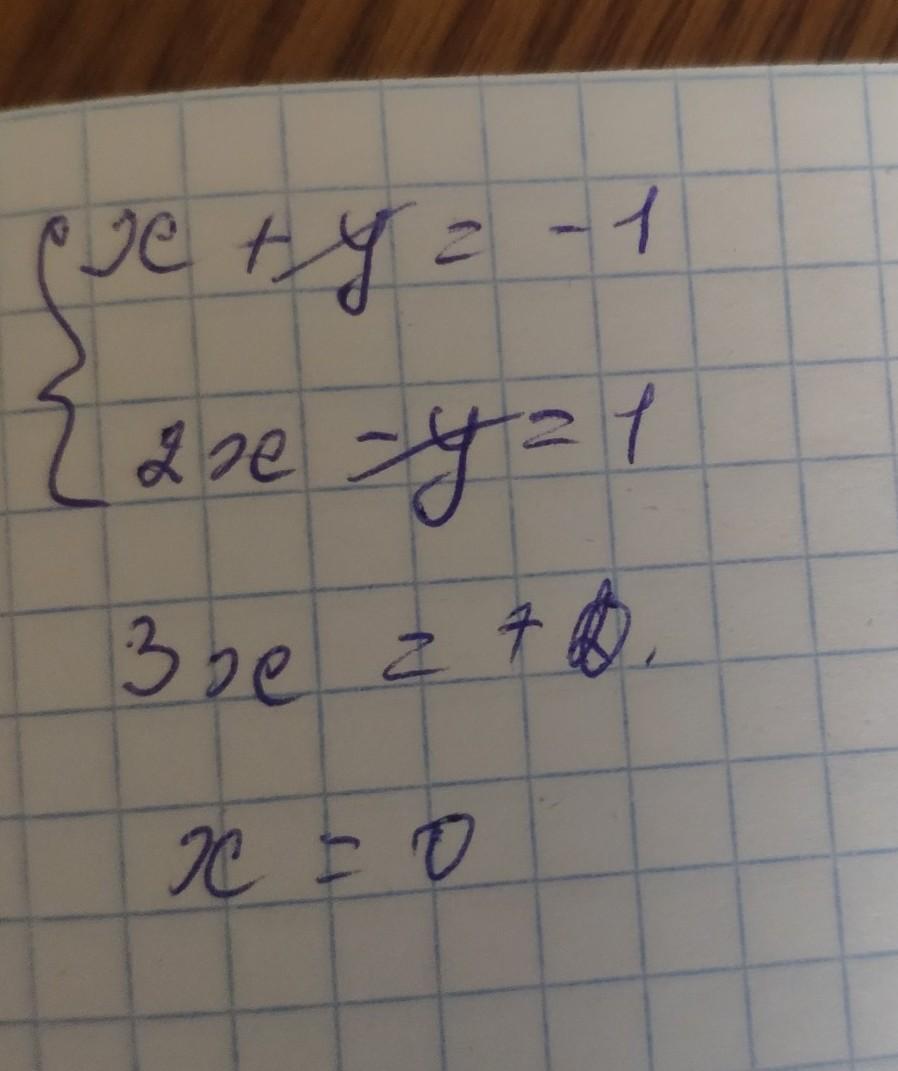 x + y = -1
2x - y = 1
3x = + 0.
x = 0